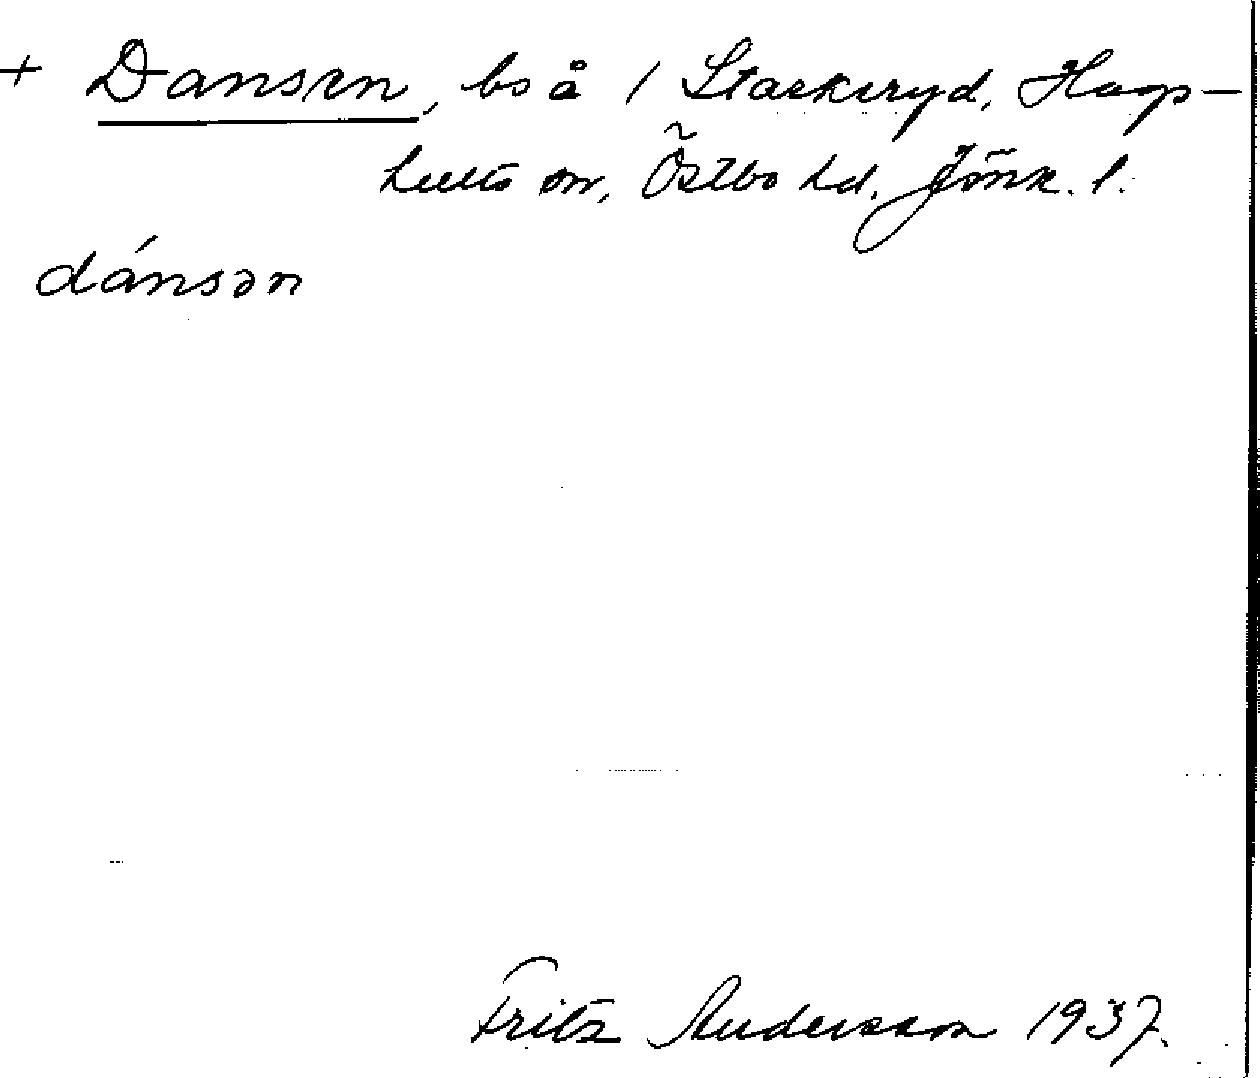 + Dansen, bs å 1 Starkeryd, Hags-
hults sn, Östbo hd, Jönk. l.
dánsən
Fritz Andersson 1937.